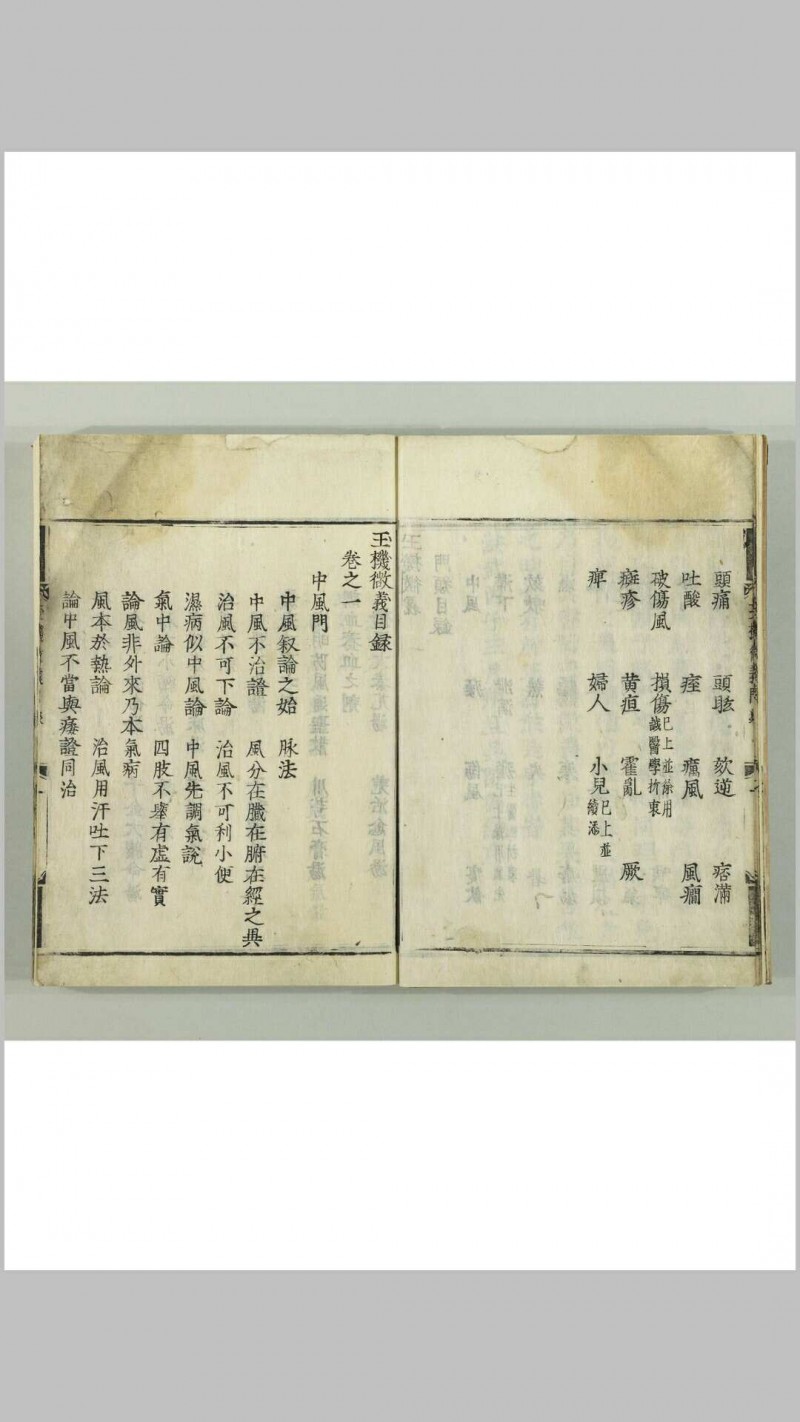 頭痛 頭眩 欬逆 痞滿
吐酸 痓 癘風 風癇
破傷風 損傷 已上並馀用誠醫學折衷
癍疹 黄疸 霍亂 厥
痺 婦人 小兒 已上並續添
玉機微義目録
卷之一
中風門
中風叙論之始 脉法
中風不治證 風分在臟在腑在經之異
治風不可下論 治風不可利小便
濕病似中風論 中風先調氣説
氣中論 四肢不舉有虚有實
論風非外來乃本氣病
風本於熱論 治風用汗吐下三法
論中風不當與痿證同治